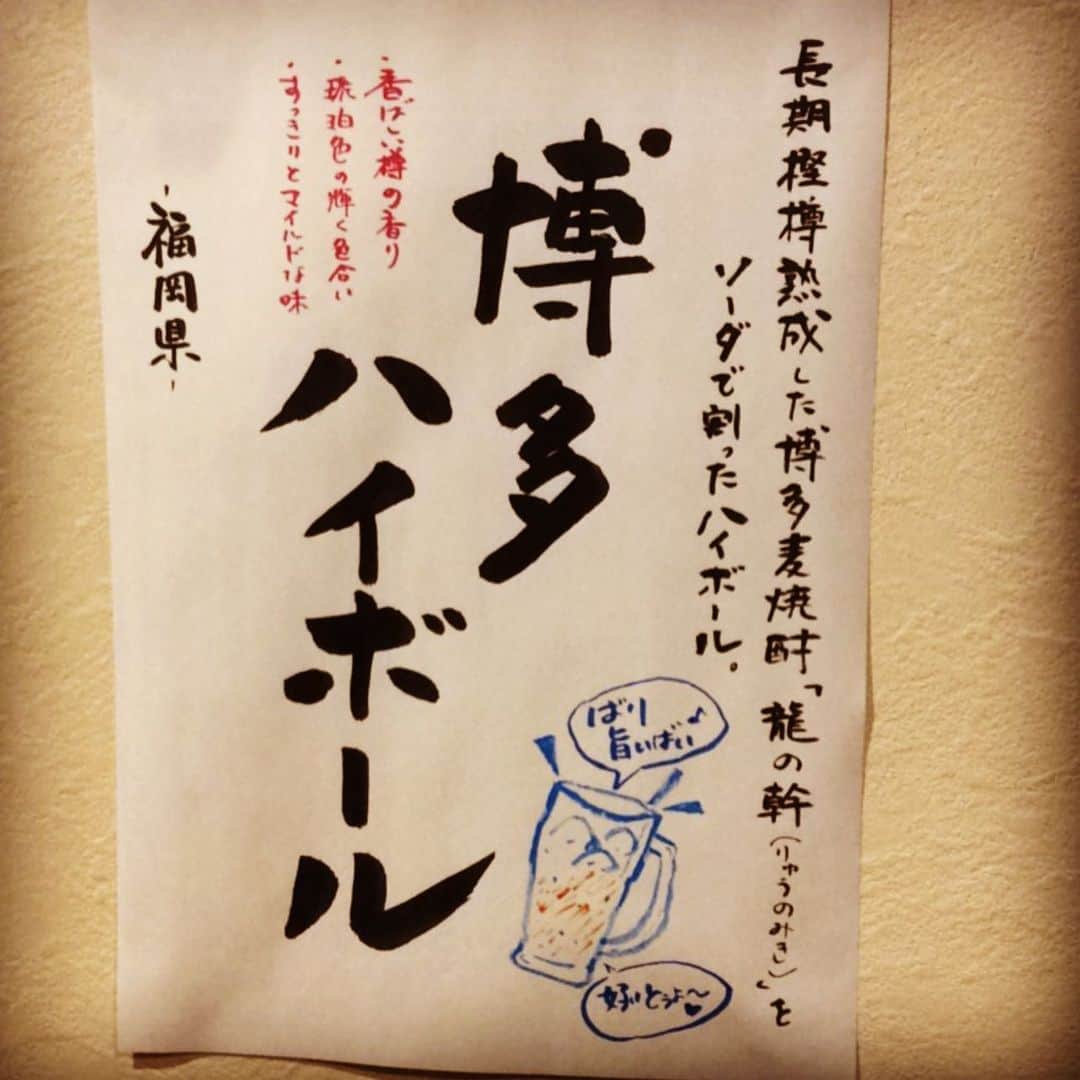 長期樫樽熟成した博多麦焼酎「龍の幹(りゅうのみき)」を
ソーダで割ったハイボール。
博多
ハイボール
・香ばしい樽の香り
・琥珀色の輝く色合い
・すっきりとマイルドな味
-福岡県-
ばり
旨いばい♪
好いとうよ〜♥